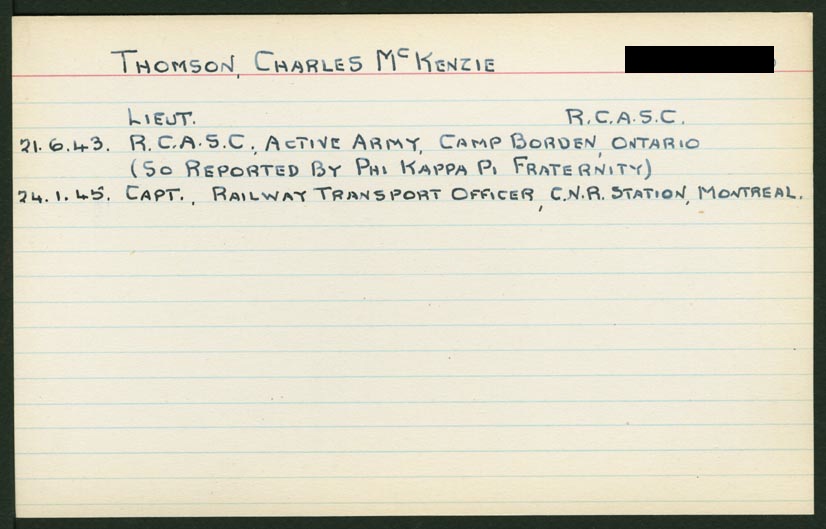 THOMSON, CHARLES McKENZIE
LIEUT. R.C.A.S.C.
21.6.43. R.C.A.S.C., ACTIVE ARMY, CAMP BORDEN, ONTARIO
(SO REPORTED BY PHI KAPPA PI FRATERNITY)
24.1.45. CAPT., RAILWAY TRANSPORT OFFICER, C.N.R. STATION, MONTREAL.